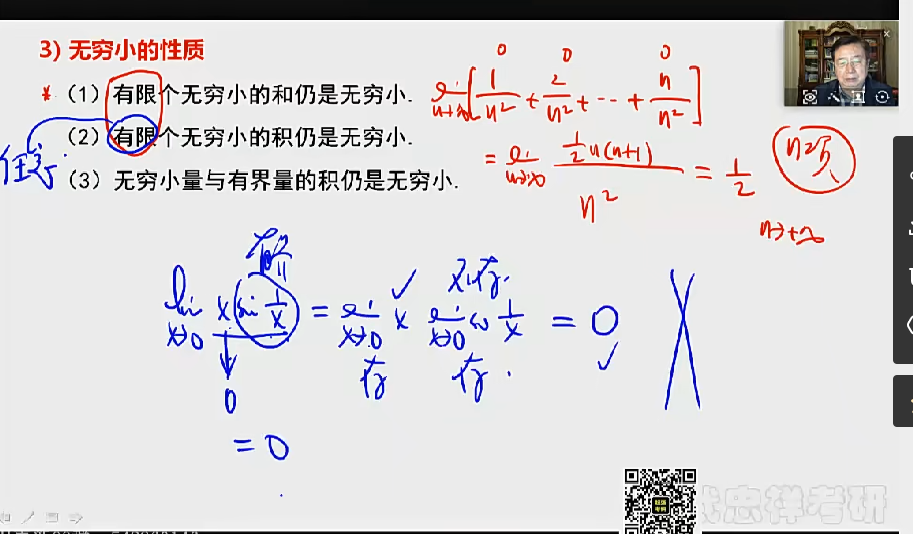 3) 无穷小的性质
* (1) 有限个无穷小的和仍是无穷小.
(2) 有限个无穷小的积仍是无穷小.
(3) 无穷小量与有界量的积仍是无穷小.
0 0 0
lim n→∞ [1/n² + 2/n² + ··· + n/n²]
= lim n→∞ ½n(n+1) / n² = 1/2
n项
n→+∞
有界
不存在.
lim x→0 x sin 1/x = lim x→0 x lim x→0 sin 1/x = 0
存在 存在.
0
= 0
忠祥考研